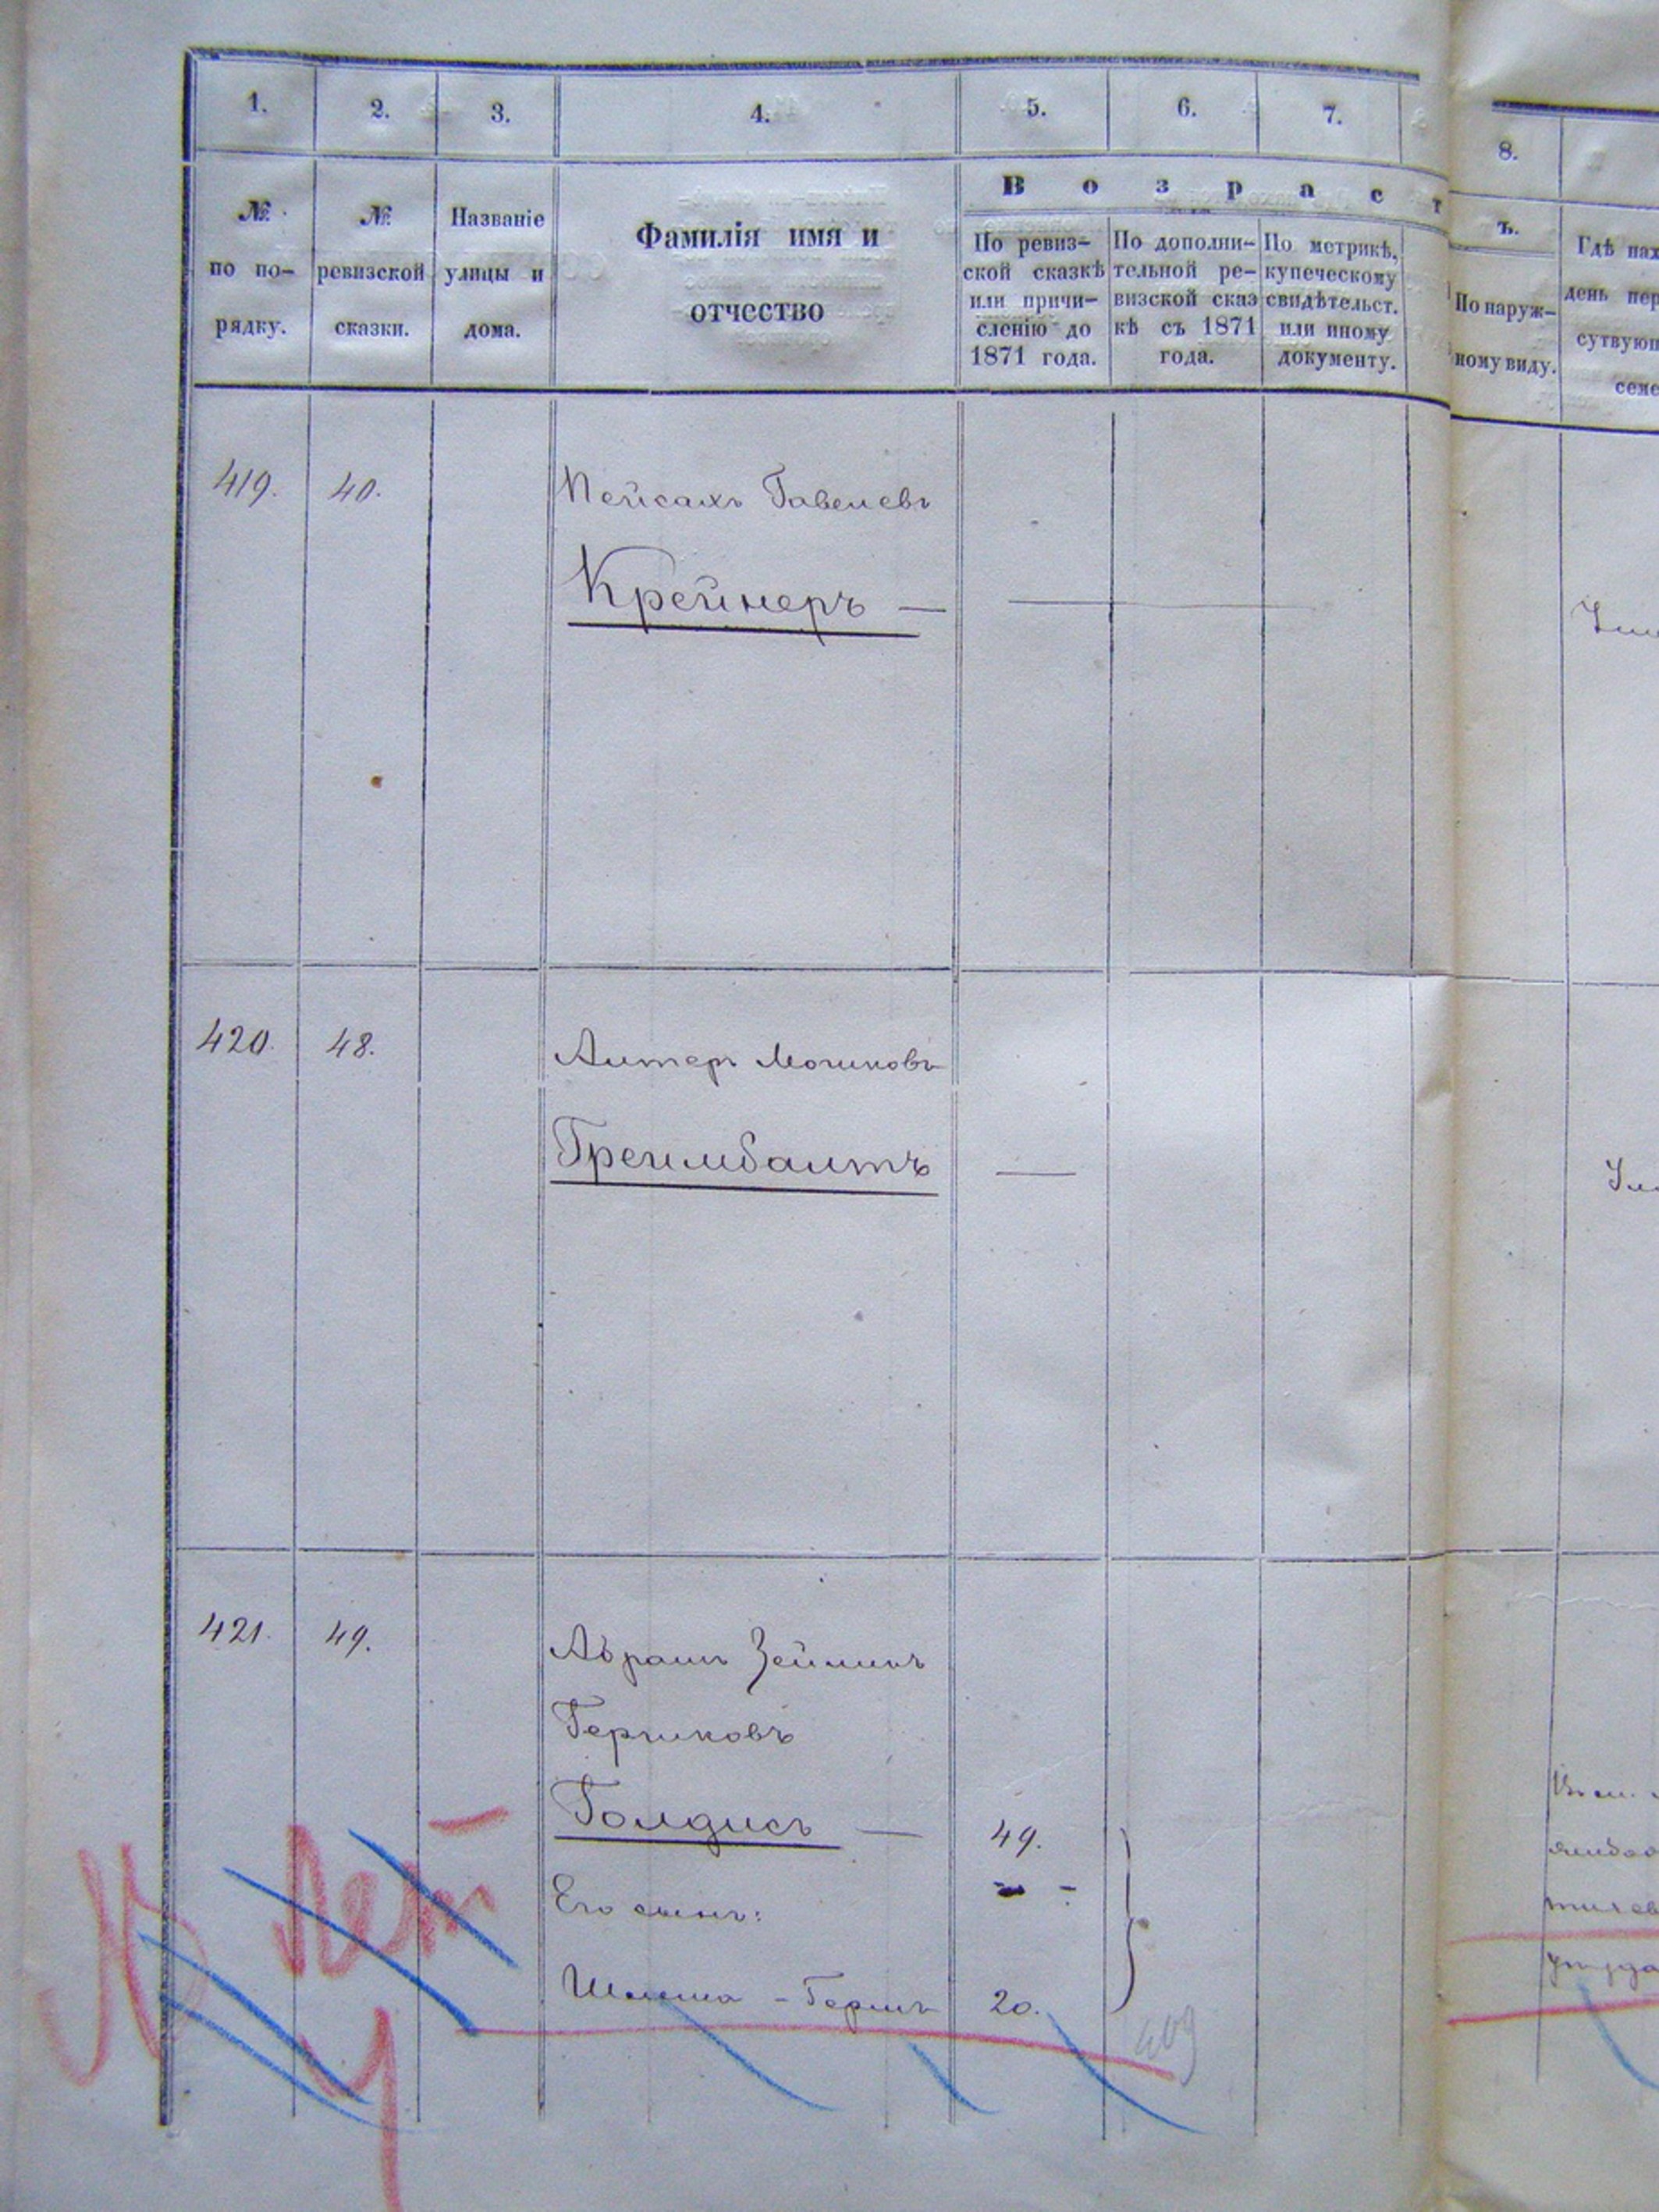 1. 2. 3. 4. 5. 6. 7. 8.
№ по по- рядку.
№ ревизской сказки.
Названіе улицы и дома.
Фамилія имя и отчество
Возрастъ.
По ревиз-
ской сказкѣ
или причи-
сленію до
1871 года.
По дополни-
тельной ре-
визской сказ
кѣ съ 1871
года.
По метрикѣ,
купеческому
свидѣтельст.
или иному
документу.
По наруж-
ному виду.
Гдѣ нах
день пер
сутвующ
семе
419. 40. Пейсахъ Гавелевъ
Крейнеръ —
420. 48. Алтеръ Мошковъ
Грейлмбалтъ —
421. 49. Абрамъ Зейликъ
Гершковъ
Голдисъ — 49.
Его сынъ:
Шлема - Гершъ 20.
409